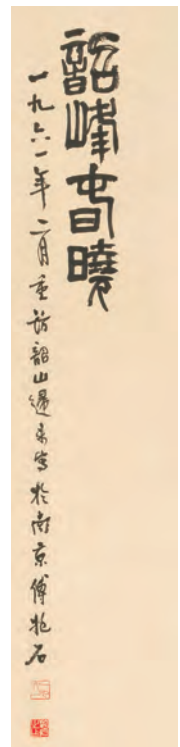 韶峰春曉
一九六一年二月重訪韶山遝来寫於南京傅抱石